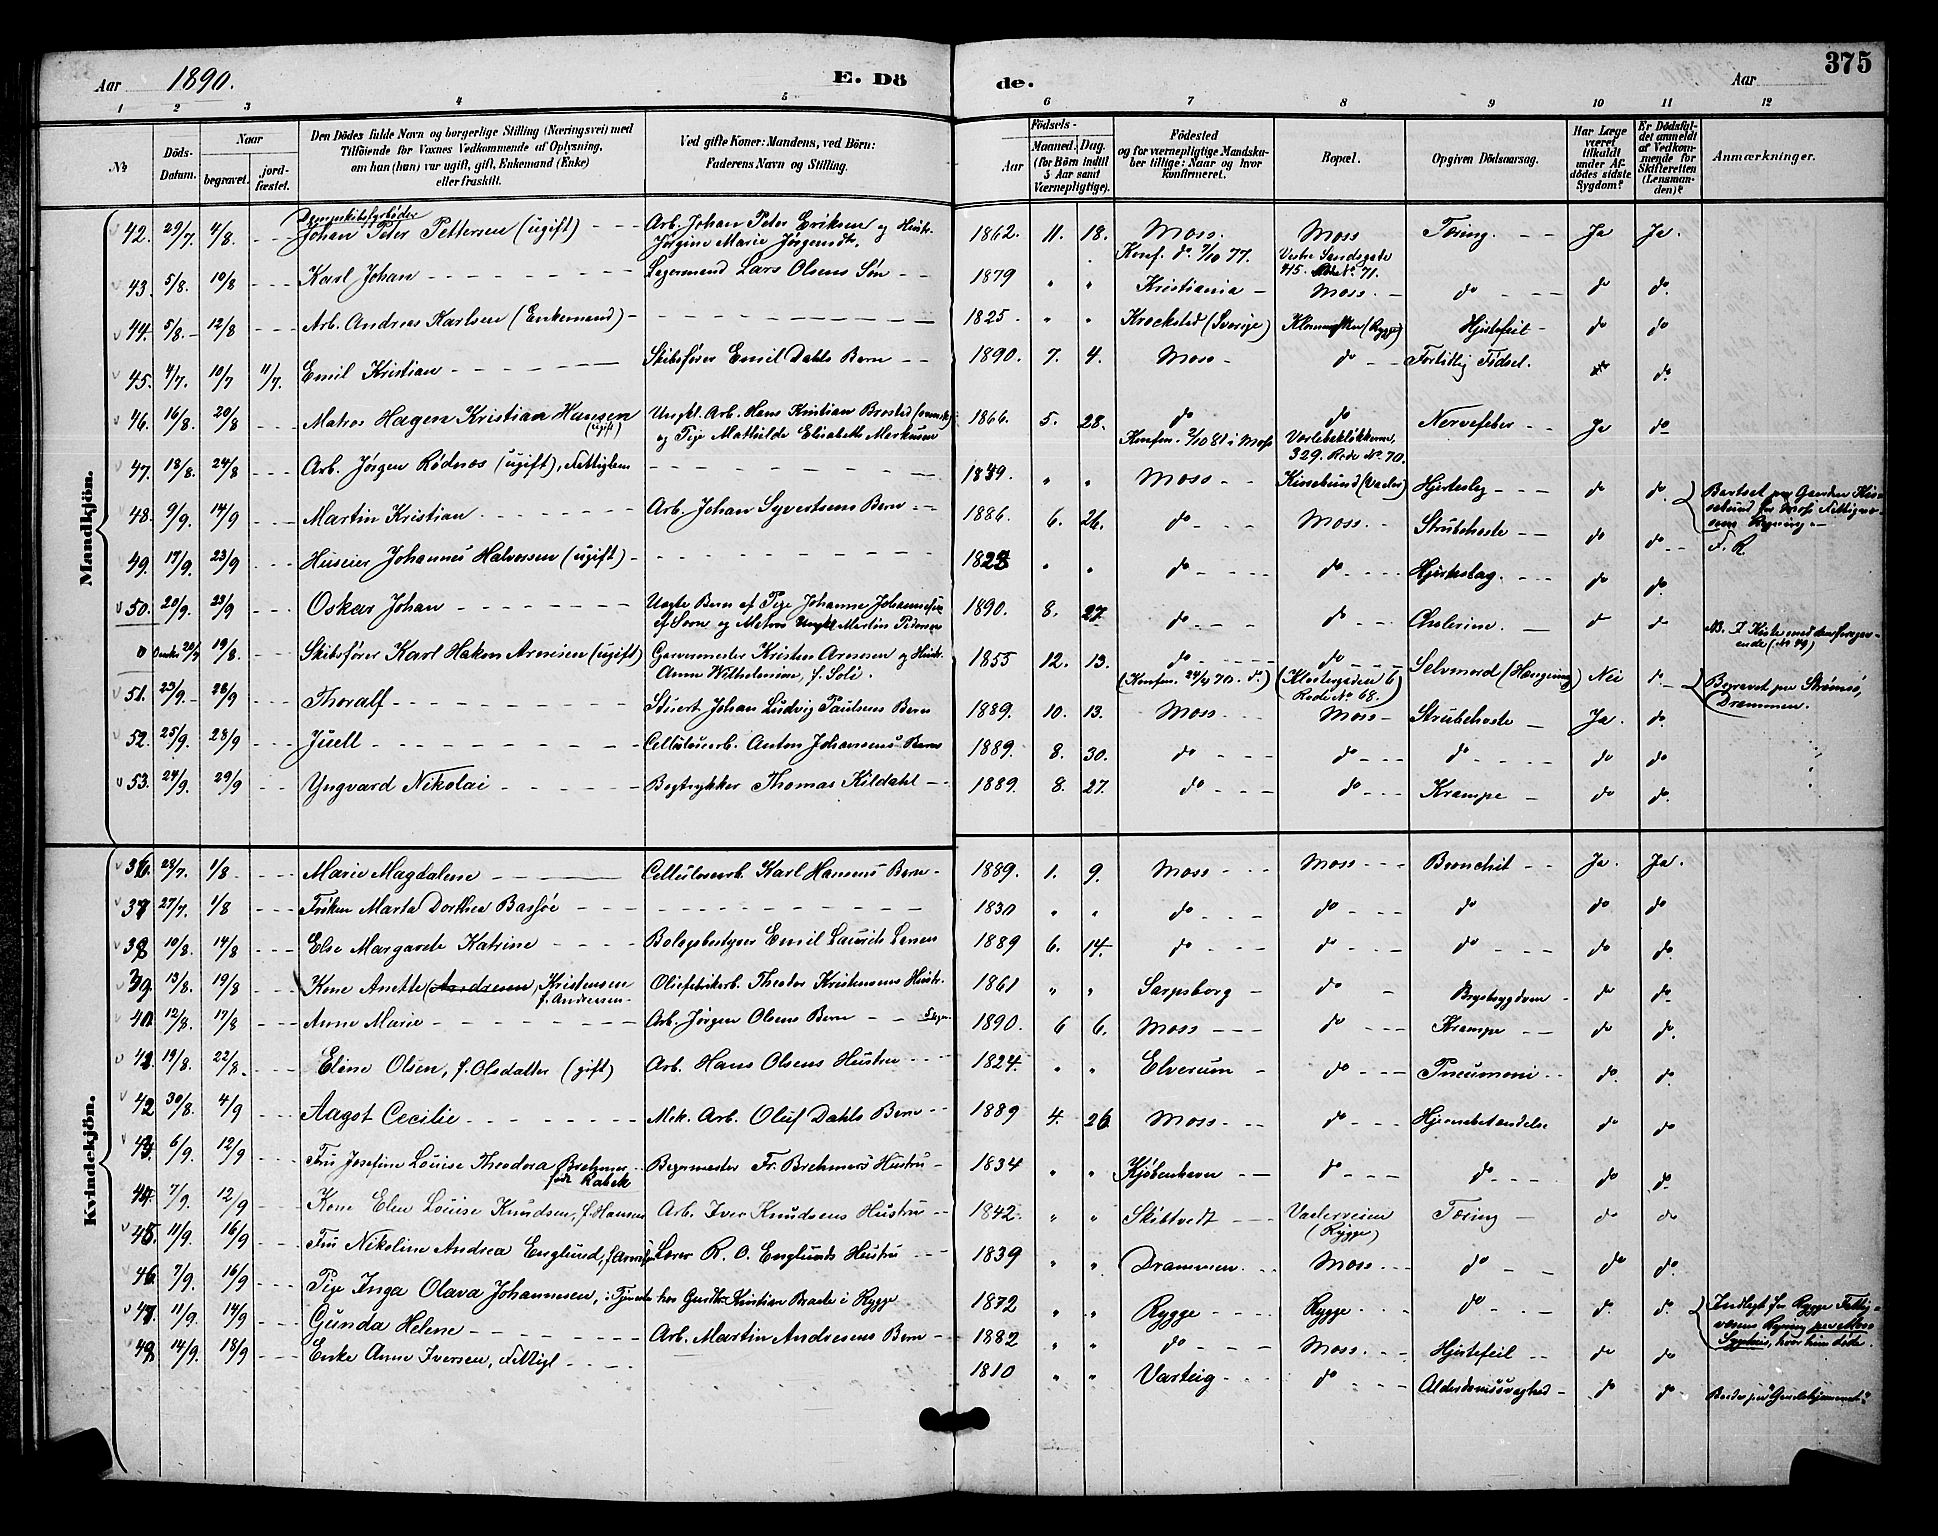 Aar 1890. E. Dö de. Aar 375
1 2 3 4 5 6 7 8 9 10 11 12
№ Döds-Datum. Naar begravet. jordfæstet. Den Dödes fulde Navn og borgerlige Stilling (Næringsvei) med Tilföiende for Voxnes Vedkommende af Oplysning, om han (hun) var ugift, gift, Enkemand (Enke) eller fraskilt. Ved gifte Koner: Mandens, ved Börn: Faderens Navn og Stilling. Födsels- Aar Maaned. Dag. (for Börn indtil 5 Aar samt Værnepligtige). Födested og for værnepligtige Mandskaber tillige: Naar og hvor konfirmeret. Bopæl. Opgiven Dödsaarsag. Har Læge været tilkaldt under Afdødes sidste Sygdom? Er Dödsfaldet anmeldt af Vedkommende for Skifteretten (Lensmanden)? Anmærkninger.
Mandkjön.
42. 29/7. 4/8. Dampskibsfyrbøder Johan Peter Pettersen (ugift) Arb. Johan Peter Eriksen og Hustr. Jørgine Marie Jørgensdt. 1862. 11. 18. Moss. Konf. do 7/10 77. Moss Vestre Sandsgade 415. Rode No 71. Tæring. Ja Ja.
43. 5/8. 10/8 Karl Johan Sagermend Lars Olsens Søn 1879 " " Kristiania Moss. do do do.
44. 5/8. 12/8 Arb. Andreas Karlsen (Enkemand) 1825 " " Krockstad (Sverige) (Rygge) Hjertefeil do do
45. 4/7. 10/7 11/7. Emil Kristian Skibsfører Emil Dahls Barn 1890. 7. 4. Moss do Fortidlig Fødsel. do.
46. 16/8 20/8 Matros Hagen Kristian Hansen (ugift) Ungkl. Arb. Hans Kristian Brosted og Pige Mathilde Elisabeth Markusen 1866. 5. 28. do Konfm. 2/10 81 i Moss do 329. Rode No 70. Nervefeber Ja do
47. 18/8. 24/8 Arb. Jørgen Rødnes (ugift), Fattiglem 1849. " " Moss (Vaaler) Hjerteslag do do.
48. 9/9. 14/9 Martin Kristian Arb. Johan Syvertsens Barn 1886. 6. 26. do Moss. Strubehoste do do F. R.
49. 17/9. 23/9 Huseier Johannes Halvorsen (ugift) 1824 " " do do. Hjerteslag. do do.
50. 20/9. 23/9 Oskar Johan Uægte Barn af Pige Johanne og Matros Ungkl Martin Pedersen 1890. 8. 27. do do Cholerine do do NB. I Kiste med den foregaaende (No 49)
0 19/8. Skibsfører Karl Hakon Arnesen (ugift) Garvermester Kristen Arnesen og Hustr. Anne Wilhelmine, f. Soli. 1855 12. 13. do (Konfm. 24/4 70. do.) do (Klostergaden 6 Rode No 68.) Selvmord (Hængning) Nei do. Begravet paa Strømsø, Drammen.
51. 23/9. 28/9 Thoralf Stuert Johan Ludvig Paulsens Barn 1889. 10. 13. Moss Moss Strubehoste Ja. do.
52. 25/9. 28/9 Juell Cellulosearb. Anton Johansens Barn 1889. 8. 30. do do do do do
53. 24/9. 29/9 Yngvard Nikolai Bogtrykker Thomas Kildahl 1889. 8. 27. do do Krampe do do.
Kvindekjön.
36. 28/7. 1/8. Marie Magdalene Cellulosearb. Karl Hansens Barn 1889. 1. 9. Moss Moss Bronchit Ja. Ja.
37 27/7. 1/8 Frøken Marta Dorthea Bassøe 1830 " " do do do do do
38 10/8. 14/8 Else Margarete Katrine Bologsbestyrer Emil Laurits Lenes 1889 6. 14. do do do do do.
39 13/8. 19/8 Kone Anette (Andresen, Kristensen f. Andresen Oliefabrikarb. Theodor Kristensens Hustr. 1861 " " Sarpsborg do Brystsygdom do do.
40. 12/8. 17/8 Anne Marie Arb. Jørgen Olsens Barn 1890. 6 6. Moss do Krampe do do.
41. 19/8. 22/8. Eline Olsen, f. Olsdatter (gift) Arb. Hans Olsens Hustru 1824. " " Elverum do Pneumoni do. do.
42 30/8. 4/9 Aagot Cecilie Mek. Arb. Oluf Dahls Barn 1889 4. 26. Moss do Hjernebetændelse do do
43. 6/9. 12/9 Fru Josefine Louise Theodora Brehmer født Rabek Begermester Fr. Brehmers Hustru 1834 " " Kjøbenhavn do do do do.
44. 7/9. 12/9 Kone Elen Louise Knudsen, f. Hansen Arb. Iver Knudsens Hustru 1842. " " Skibtvedt Vaalerveien (Rygge) Tæring do do
45. 11/9. 16/9 Fru Nikoline Andrea Englund, f. Lærer R. O. Englunds Hustru 1839 " " Drammen. Moss do do do.
46 7/9. 16/9 Pige Inga Olava Johannesen, i Tjeneste hos Gaardbr. Kristian Braate i Rygge 1872 " " Rygge Rygge do do do. Indlagt for Rygge Fattigvæsens Regning paa Moss Sygehus, hvor hun døde.
47. 11/9. 14/9 Gunda Helene Arb. Martin Andresens Barn 1882 " " do Moss. Hjertefeil do do
48 14/9. 18/9 Enke Anne Iversen, Fattigl. 1810 " " Varteig do Alderdomssvaghed do do Boede paa "Gamlehjemmet"